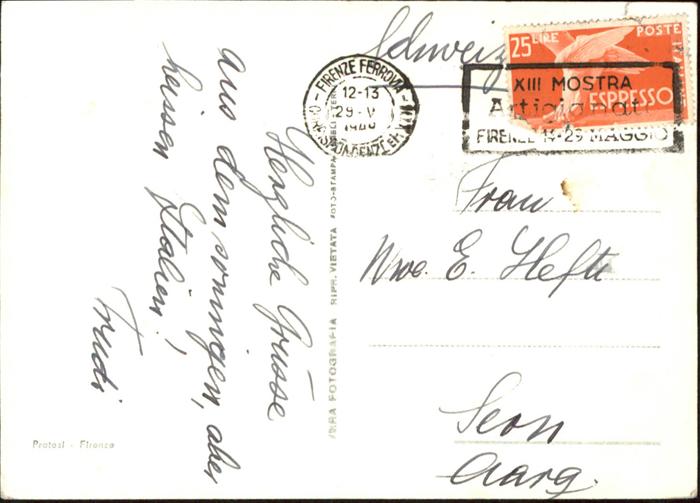 Herzliche Grüsse
aus dem sonnigen, aber
heissen Italien!
Trudi
Schweiz
25 LIRE POSTE
ESPRESSO
FIRENZE FERROVIA
12-13
29·V
XIII MOSTRA
Artigianato
FIRENZE 14-29 MAGGIO
VERA FOTOGRAFIA RIPR. VIETATA
Frau
Nwe. E. Hefti
Seon
Aarg.
Protosi - Firenze